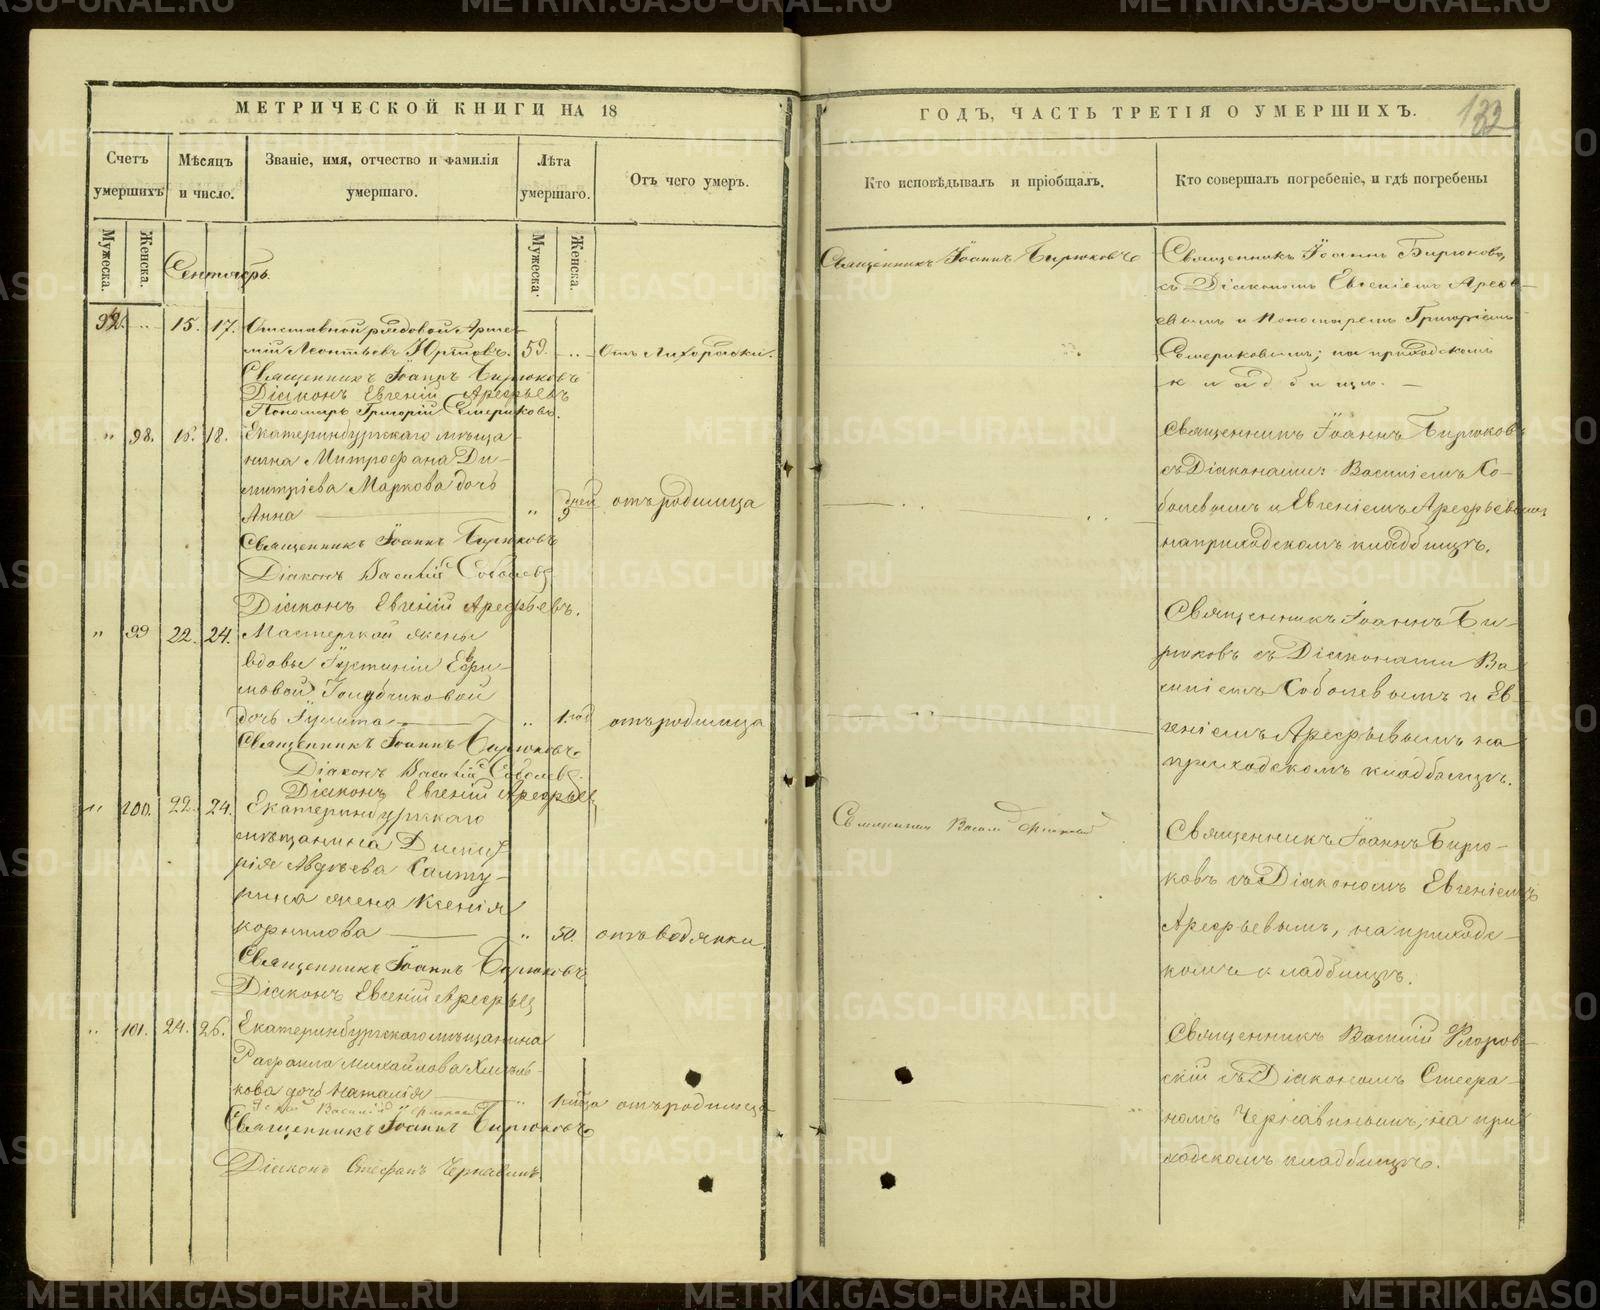 МЕТРИЧЕСКОЙ КНИГИ НА 18
Счетъ умершихъ
Мѣсяцъ и число.
Званіе, имя, отчество и фамилія умершаго.
Лѣта умершаго.
Отъ чего умеръ.
Мужеска.
Женска.
Мужеска.
Женска.
Сентябрь.
15. 17. Отставной рядовой Арте-
мій Леонтьевъ 59. Отъ Лихорадки.
Священникъ Іоаннъ Бирюковъ
Діаконъ Евгеній Арефьевъ
Пономарь Григорій
" 98. 15. 18. Екатеринбургскаго мѣща-
нина Митрофана Ди-
митріева Маркова дочь
Анна " 9 дней отъ родимца
Священникъ Іоаннъ Бирюковъ
Діаконъ Василій Соболевъ
Діаконъ Евгеній Арефьевъ.
" 99 22. 24. Мастерской жены
вдовы Іустиніи Ефи-
мовой Голубчиковой
дочь Іулита " 1. год отъ родимца
Священникъ Іоаннъ Бирюковъ
Діаконъ Василій Соболевъ.
Діаконъ Евгеній Арефьев
" 100. 22. 24. Екатеринбургскаго
мѣщанина Димит
рія Авдѣева
жена Ксенія
Корнилова " 50. отъ водянки
Священникъ Іоаннъ Бирюковъ
Діаконъ Евгеній Арефьев
" 101. 24. 26. Екатеринбургскаго мѣщанина
Рафаила Михайлова Хмѣль-
кова дочь Наталія " 1 отъ родимца
Священникъ Іоаннъ Бирюковъ
Діаконъ Стефанъ Чернавинъ
ГОДЪ, ЧАСТЬ ТРЕТІЯ О УМЕРШИХЪ.
132
Кто исповѣдывалъ и пріобщалъ.
Кто совершалъ погребеніе, и гдѣ погребены
Священникъ Іоаннъ Бирюковъ
Священникъ Іоаннъ Бирюковъ
съ Діакономъ Евгеніемъ Арефь-
евымъ и Пономаремъ Григоріемъ
на приходскомъ
кладбищѣ. —
Священникъ Іоаннъ Бирюковъ
съ Діаконами: Василіемъ Со-
болевымъ и Евгеніемъ Арефьевымъ
на приходскомъ кладбищѣ.
Священникъ Іоаннъ Би-
рюковъ съ Діаконами Ва
силіемъ Соболевымъ и Ев-
геніемъ Арефьевымъ на
приходскомъ кладбищѣ.
Священникъ
Священникъ Іоаннъ Бирю-
ковъ съ Діакономъ Евгеніемъ
Арефьевымъ, на приходс-
комъ кладбищѣ.
Священникъ Василій Флоров-
скій съ Діакономъ Стефа-
номъ Чернавинымъ, на при
ходскомъ кладбищѣ.
METRIKI.GASO-URAL.RU